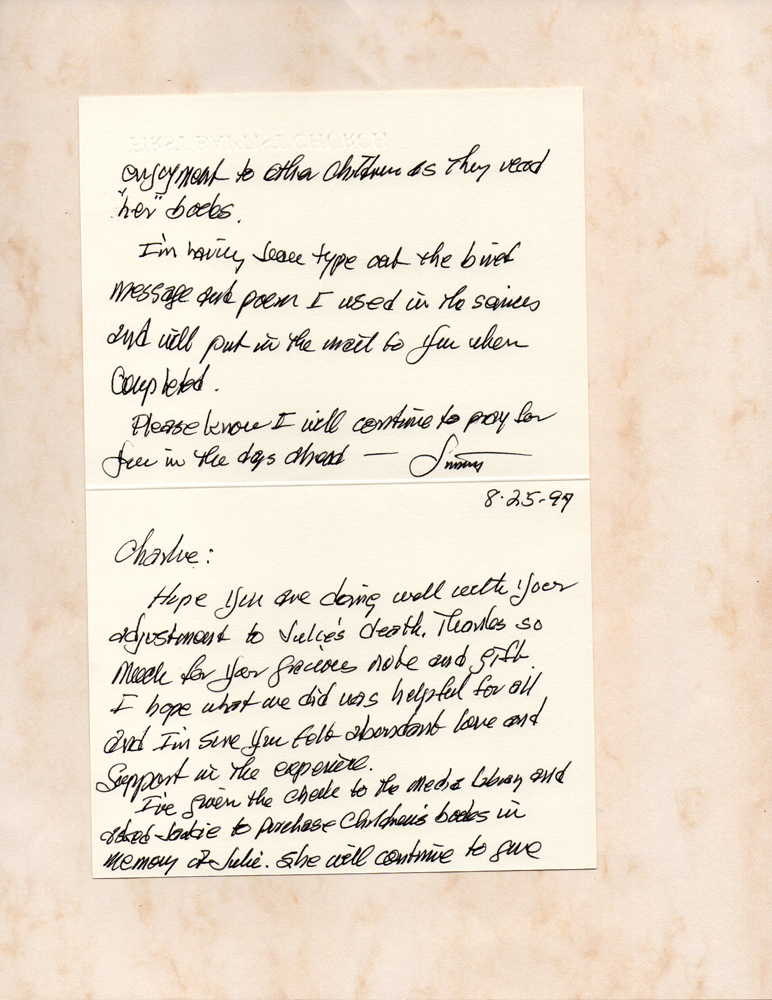 FIRST BAPTIST CHURCH
enjoyment to other children as they read
"her" books.
I'm having type out the brief
message and poem I used in the service
and will put in the mail to you when
completed.
Please know I will continue to pray for
you in the days ahead —
8-25-97
Charlie:
Hope you are doing well with your
adjustment to Julie's death. Thanks so
much for your gracious note and gift.
I hope what we did was helpful for all
and I'm sure you felt abundant love and
support in the experience.
I've given the check to the Media Library and
asked Jackie to purchase Children's books in
memory of Julie. She will continue to give